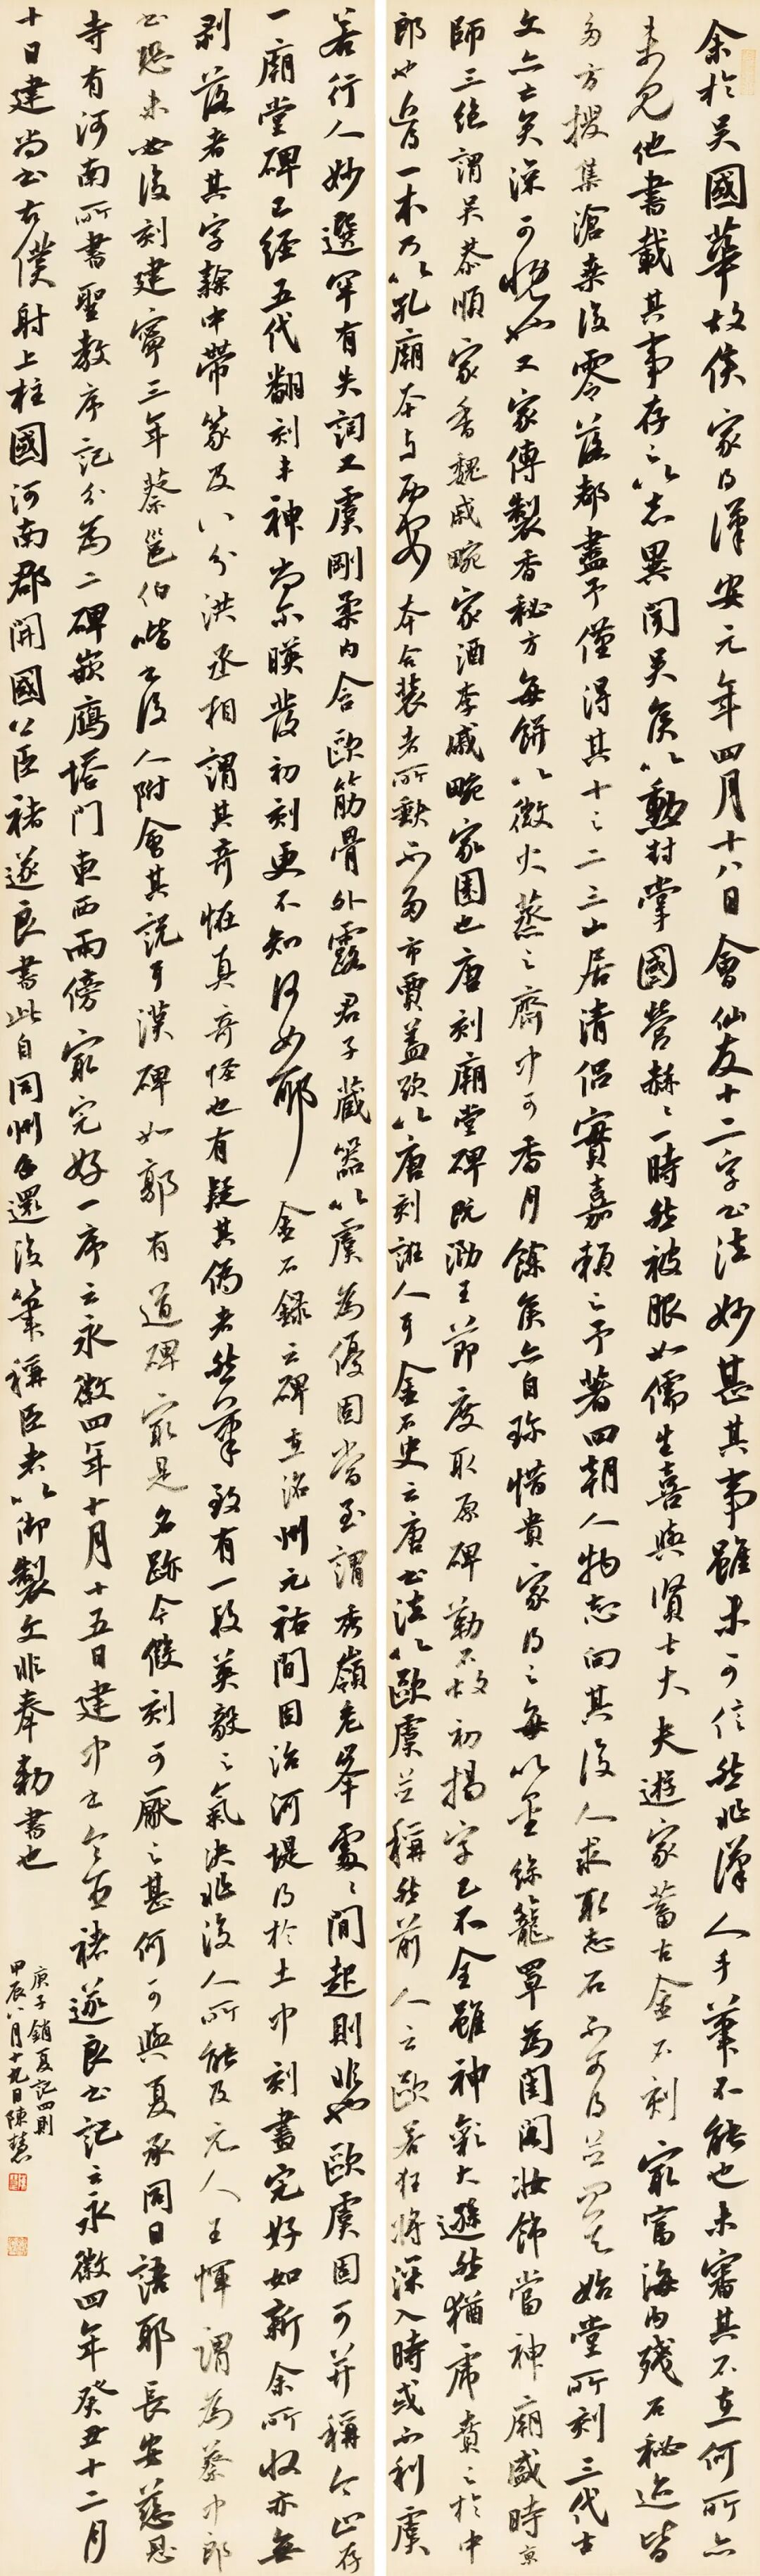 余於吳國華故侯家得漢安元年四月十八日會仙友十二字書法妙甚其事雖未可信然非漢人手筆不能也未審其石在何所亦
未見他書載其事存之以志異聞吳侯以勳封掌國營赫赫一時然被服如儒生喜與賢士大夫遊家蓄古金石刻最富海內殘石秘迹皆
多方搜集滄桑後零落都盡予僅得其十之二三山居清侶實嘉賴之予著四朝人物志向其後人求取志石不可得並天一始堂所刻三代古
文亦亡矣深可惋也又家傳製香秘方每餅以微火蒸之齋中可香月餘侯亦自珍惜貴家得之每以金絲籠罩為閨閣妝飾當神廟盛時京
師三絕謂吳恭順家香魏戚畹家酒李戚畹家園也唐刻廟堂碑既泐王節度取原碑勒石故初搨字已不全雖神彩大遜然猶虎賁之於中
郎也近一本乃以孔廟本與西安本合裝者所缺不多市賈蓋欲以唐刻誑人耳金石史云唐書法以歐虞並稱然前人云歐若狂將深入時或不利虞
若行人妙選罕有失詞又虞剛柔內含歐筋骨外露君子藏器以虞為優固當至謂秀嶺危峰處處間起則非也歐虞固可并稱今止存
一廟堂碑已經五代翻刻丰神尚爾映發初刻更不知何如耶 金石錄云碑在洺州元祐間因治河堤得於土中刻畫完好如新余所收亦無
剝落者其字隸中帶篆及八分洪丞相謂其奇怪真奇怪也有疑其偽者然筆致有一段英毅之氣決非後人所能及元人王惲謂為蔡中郎
書恐未必後刻建寧三年蔡邕伯喈書後人附會其說耳漢碑如郭有道碑最是名跡今假刻可厭之甚何可與夏承同日語耶長安慈恩
寺有河南所書聖教序記分為二碑嵌鴈塔門東西兩傍最完好一序云永徽四年十月十五日建中書令臣褚遂良書記云永徽四年癸丑十二月
十日建尚書右僕射上柱國河南郡開國公臣褚遂良書此自同州召還後筆稱臣者以御製文非奉勅書也
庚子銷夏記四則
甲辰八月十九日陳慧